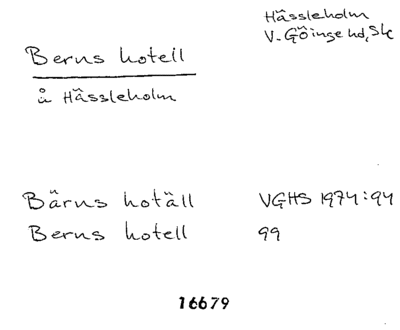 Hässleholm
V. Göinge hd, Sk
Berns hotell
å Hässleholm
Bärns hotäll VGHS 1974:94
Berns hotell 99
16679